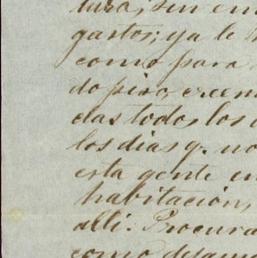 tura, sin em
gastos; ya le
como para
do piso creem
das todos los
los dias q. no
esta gente en
habitación,
alli. Procura
como desem